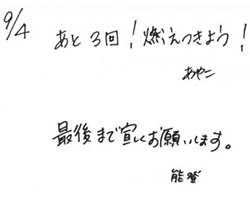 9/4
あと3回!燃えつきよう!
あやこ
最後まで宜しくお願いします。
能登